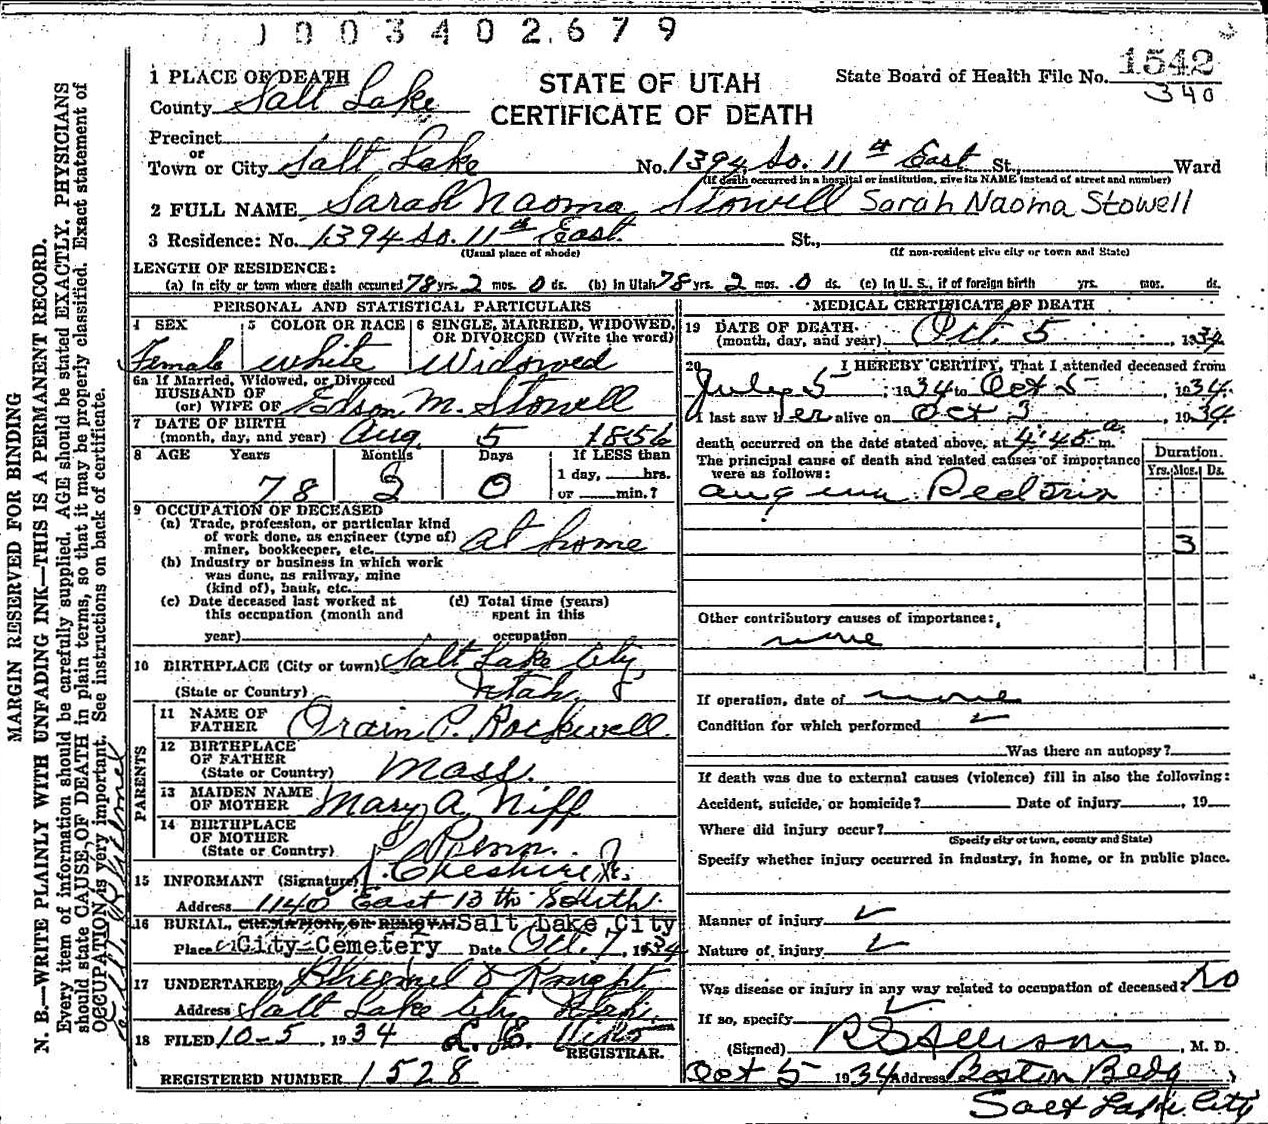 0003402679
1 PLACE OF DEATH
STATE OF UTAH
CERTIFICATE OF DEATH
State Board of Health File No. 1542
340
County Salt Lake
Precinct
or
Town or City Salt Lake No. 1394 So. 11th East St., Ward
(If death occurred in a hospital or institution, give its NAME instead of street and number)
2 FULL NAME Sarah Naoma Stowell Sarah Naoma Stowell
3 Residence: No. 1394 So. 11th East. St.,
(Usual place of abode) (If non-resident give city or town and State)
LENGTH OF RESIDENCE:
(a) In city or town where death occurred 78 yrs. 2 mos. 0 ds. (b) In Utah 78 yrs. 2 mos. 0 ds. (c) In U. S., if of foreign birth yrs. mos. ds.
PERSONAL AND STATISTICAL PARTICULARS
4 SEX
Female
5 COLOR OR RACE
White
6 SINGLE, MARRIED, WIDOWED, OR DIVORCED (Write the word)
Widowed
6a If Married, Widowed, or Divorced
HUSBAND OF
(or) WIFE OF Edson M. Stowell
7 DATE OF BIRTH
(month, day, and year) Aug. 5 1856
8 AGE Years Months Days If LESS than
1 day, hrs.
78 2 0 or min.?
9 OCCUPATION OF DECEASED
(a) Trade, profession, or particular kind
of work done, as engineer (type of)
miner, bookkeeper, etc. at home
(b) Industry or business in which work
was done, as railway, mine
(kind of), bank, etc.
(c) Date deceased last worked at
this occupation (month and
year)
(d) Total time (years)
spent in this
occupation
10 BIRTHPLACE (City or town) Salt Lake City,
(State or Country) Utah
PARENTS
11 NAME OF
FATHER Orain P. Rockwell.
12 BIRTHPLACE
OF FATHER
(State or Country) Mass.
13 MAIDEN NAME
OF MOTHER Mary A. Niff
14 BIRTHPLACE
OF MOTHER
(State or Country) Penn.
15 INFORMANT (Signature) J. Cheshire Jr.
Address 1140 East 13th South.
16 BURIAL, CREMATION, OR REMOVAL Salt Lake City
Place City Cemetery Date Oct. 7, 1934
17 UNDERTAKER
Address Salt Lake City Utah.
18 FILED 10-5, 1934
REGISTRAR.
REGISTERED NUMBER 1528
MEDICAL CERTIFICATE OF DEATH
19 DATE OF DEATH
(month, day, and year) Oct. 5, 1934
20 I HEREBY CERTIFY, That I attended deceased from
July 5, 1934 to Oct 5 1934.
I last saw her alive on Oct 3, 1934
death occurred on the date stated above, at 4:45 a m.
The principal cause of death and related causes of importance
were as follows:
Duration.
Yrs. Mos. Ds.
Angina Pectoris
3
Other contributory causes of importance:
none
If operation, date of none
Condition for which performed
Was there an autopsy?
If death was due to external causes (violence) fill in also the following:
Accident, suicide, or homicide? Date of injury, 19
Where did injury occur?
(Specify city or town, county and State)
Specify whether injury occurred in industry, in home, or in public place.
Manner of injury
Nature of injury
Was disease or injury in any way related to occupation of deceased? No
If so, specify
(Signed) R S Allison, M. D.
Oct 5 1934 Address Boston Bldg
Salt Lake City
MARGIN RESERVED FOR BINDING
N. B.—WRITE PLAINLY WITH UNFADING INK—THIS IS A PERMANENT RECORD.
Every item of information should be carefully supplied. AGE should be stated EXACTLY. PHYSICIANS
should state CAUSE OF DEATH in plain terms, so that it may be properly classified. Exact statement of
OCCUPATION is very important. See instructions on back of certificate.